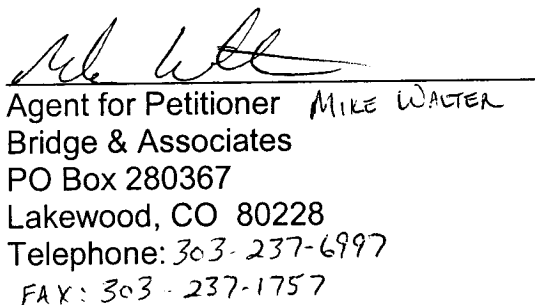 Agent for Petitioner MIKE WALTER
Bridge & Associates
PO Box 280367
Lakewood, CO 80228
Telephone: 303-237-6997
FAX: 303-237-1757